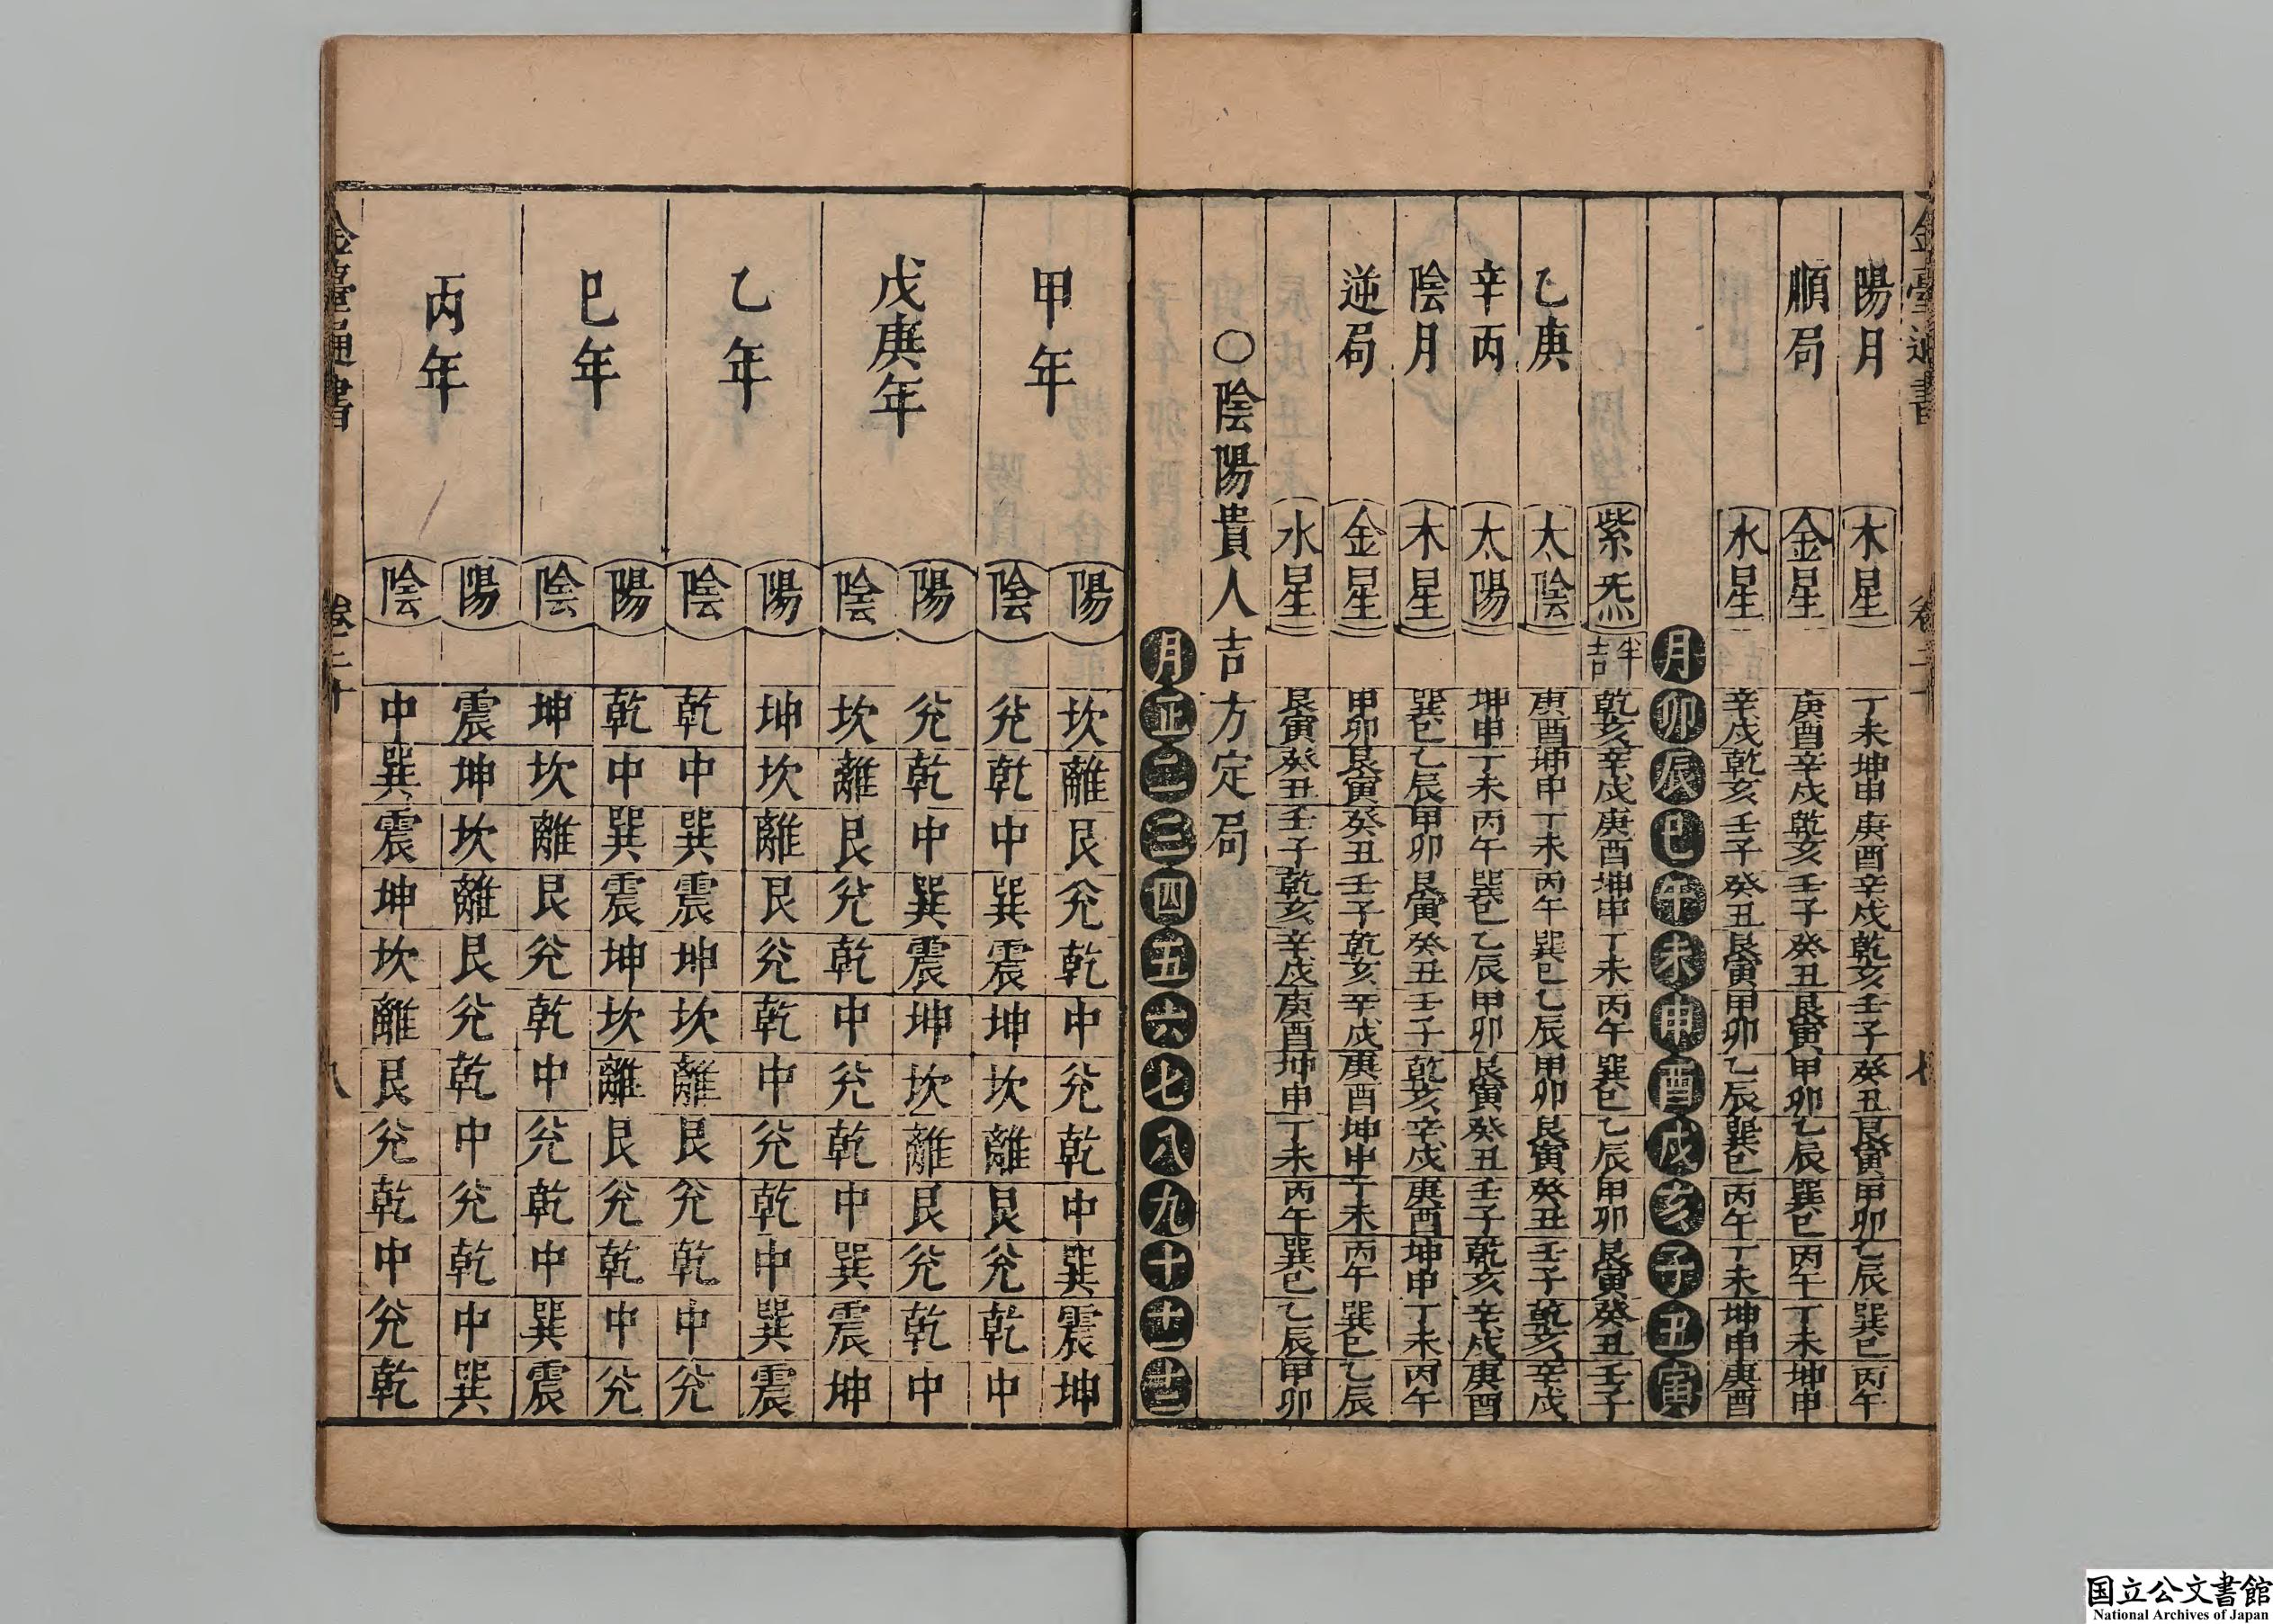 金臺通書
陽月 木星 丁未 坤申 庚酉 辛戌 乾亥 壬子 癸丑 艮寅 甲卯 乙辰 巽巳 丙午
順局 金星 庚酉 辛戌 乾亥 壬子 癸丑 艮寅 甲卯 乙辰 巽巳 丙午 丁未 坤申
水星 辛戌 乾亥 壬子 癸丑 艮寅 甲卯 乙辰 巽巳 丙午 丁未 坤申 庚酉
月 卯 辰 巳 午 未 申 酉 戌 亥 子 丑 寅
紫炁 半吉 乾亥 辛戌 庚酉 坤申 丁未 丙午 巽巳 乙辰 甲卯 艮寅 癸丑 壬子
乙庚 太陰 庚酉 坤申 丁未 丙午 巽巳 乙辰 甲卯 艮寅 癸丑 壬子 乾亥 辛戌
辛丙 太陽 坤申 丁未 丙午 巽巳 乙辰 甲卯 艮寅 癸丑 壬子 乾亥 辛戌 庚酉
陰月 木星 巽巳 乙辰 甲卯 艮寅 癸丑 壬子 乾亥 辛戌 庚酉 坤申 丁未 丙午
逆局 金星 甲卯 艮寅 癸丑 壬子 乾亥 辛戌 庚酉 坤申 丁未 丙午 巽巳 乙辰
水星 艮寅 癸丑 壬子 乾亥 辛戌 庚酉 坤申 丁未 丙午 巽巳 乙辰 甲卯
○陰陽貴人吉方定局
月 正 二 三 四 五 六 七 八 九 十 十一 十二
甲年 陽 坎 離 艮 兊 乾 中 兊 乾 中 巽 震 坤
陰 兊 乾 中 巽 震 坤 坎 離 艮 兊 乾 中
戊庚年 陽 兊 乾 中 巽 震 坤 坎 離 艮 兊 乾 中
陰 坎 離 艮 兊 乾 中 兊 乾 中 巽 震 坤
乙年 陽 坤 坎 離 艮 兊 乾 中 兊 乾 中 巽 震
陰 乾 中 巽 震 坤 坎 離 艮 兊 乾 中 兊
巳年 陽 乾 中 巽 震 坤 坎 離 艮 兊 乾 中 兊
陰 坤 坎 離 艮 兊 乾 中 兊 乾 中 巽 震
丙年 陽 震 坤 坎 離 艮 兊 乾 中 兊 乾 中 巽
陰 中 巽 震 坤 坎 離 艮 兊 乾 中 兊 乾
金臺通書 八
国立公文書館
National Archives of Japan